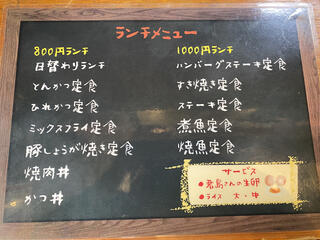 ランチメニュー
800円ランチ
日替わりランチ
とんかつ定食
ひれかつ定食
ミックスフライ定食
豚しょうが焼き定食
焼肉丼
かつ丼
1000円ランチ
ハンバーグステーキ定食
すき焼き定食
ステーキ定食
煮魚定食
焼魚定食
サービス
●君島さんの生卵
●ライス 大・中